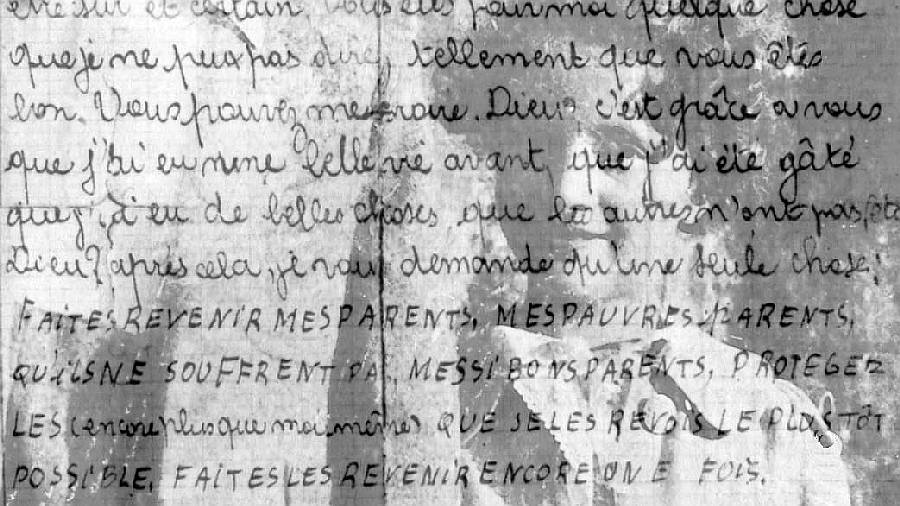 être sûr et certain. Vous êtes pour moi quelque chose
que je ne peux pas dire, tellement que vous êtes
bon. Vous pouvez me croire. Dieu? c'est grâce a vous
que j'ai eu une belle vie avant, que j'ai été gâté
que j'ai eu de belles choses que les autres n'ont pas
Dieu? après cela, je vous demande qu'une seule chose:
FAITES REVENIR MES PARENTS, MES PAUVRES PARENTS,
QU'ILS NE SOUFFRENT PAS, MES SI BONS PARENTS, PROTEGEZ
LES (encore plus que moi même) QUE JE LES REVOIS LE PLUS TÔT
POSSIBLE, FAITES LES REVENIR ENCORE UNE FOIS.